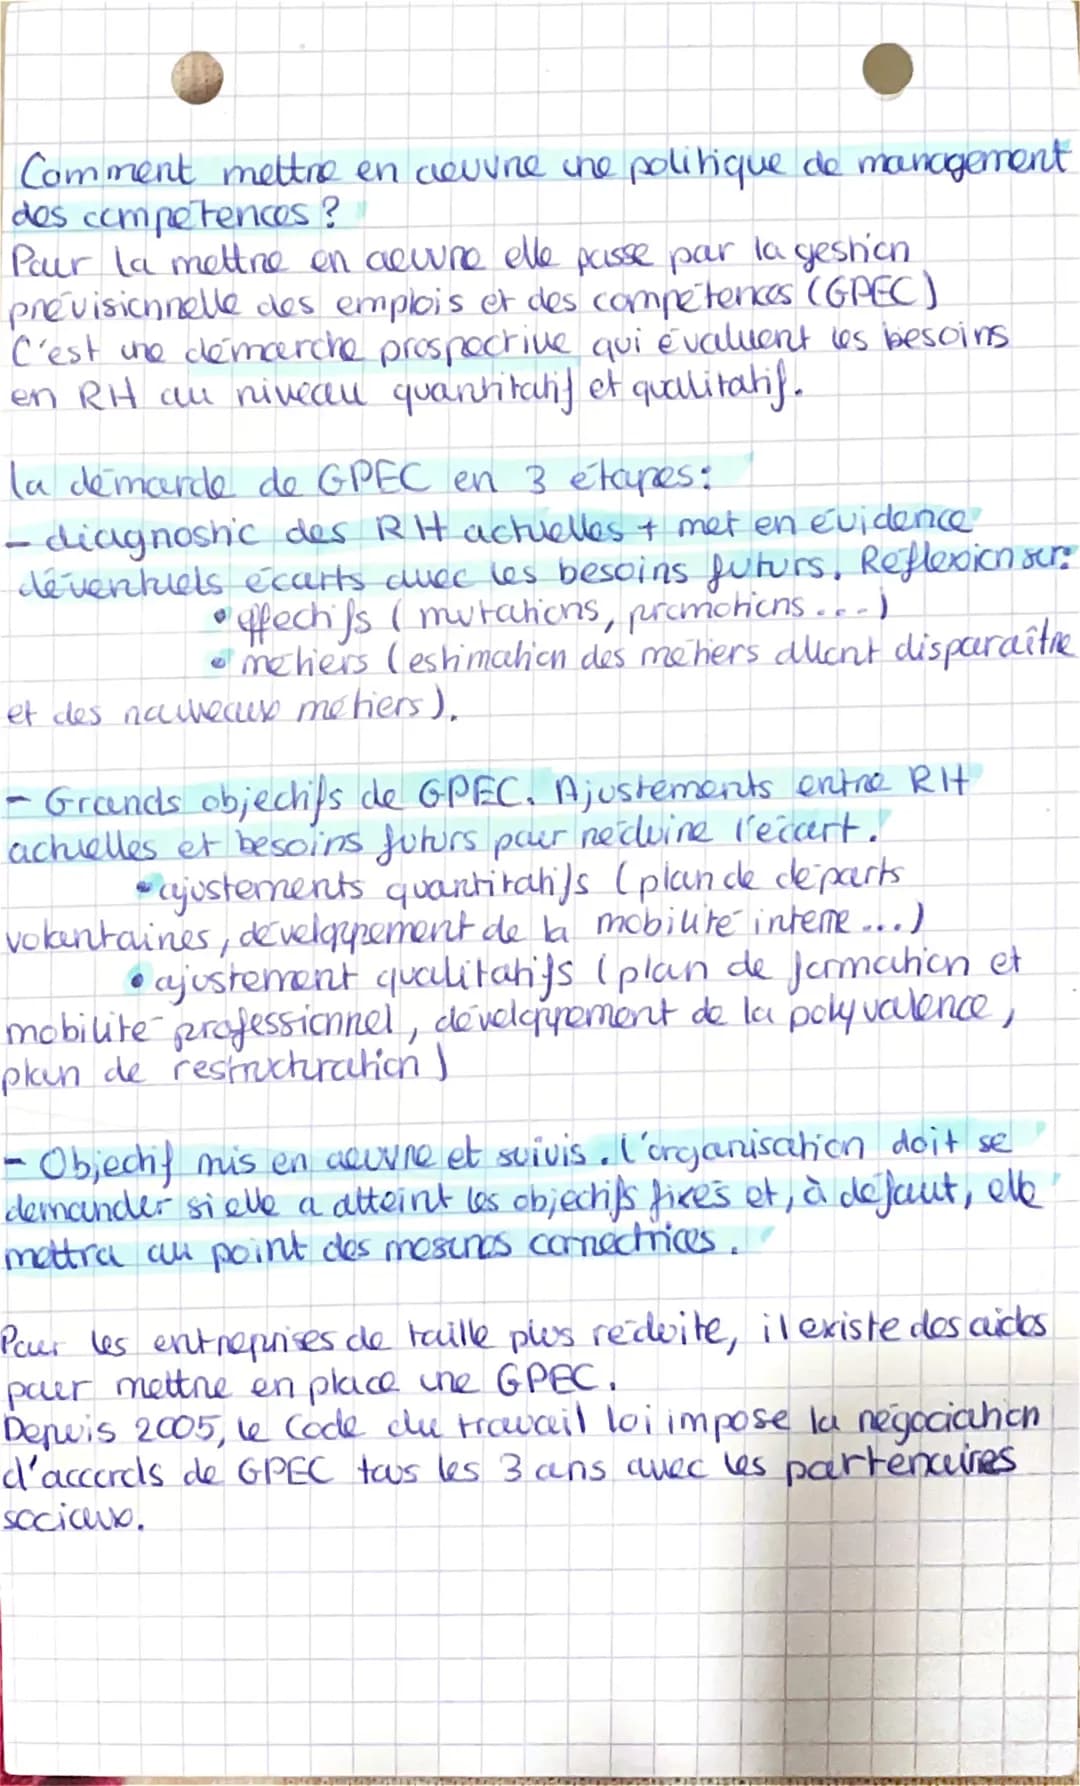 Comment mettre en œuvre une politique de management
des compétences ?
Pour la mettre en œuvre elle passe par la gestion
prévisionnelle des emplois et des compétences (GPEC)
C'est une démarche prospective qui évaluent les besoins
en RH au niveau quantitatif et qualitatif.
la démarde de GPEC en 3 étapes :
- diagnostic des RH actuelles + met en évidence
d'éventuels écarts avec les besoins futurs. Réflexion sur :
• effectifs (mutations, promotions ...)
• métiers (estimation des métiers allant disparaître
et des nouveaux métiers).
- Grands objectifs de GPEC. Ajustements entre RH
actuelles et besoins futurs pour réduire l'écart.
• ajustements quantitatifs (plan de départs
volontaires, développement de la mobilité interne ...)
• ajustement qualitatifs (plan de formation et
mobilité professionnel, développement de la polyvalence,
plan de restructuration)
- Objectif mis en œuvre et suivis. l'organisation doit se
demander si elle a atteint les objectifs fixés et, à défaut, elle
mettra au point des mesures correctrices.
Pour les entreprises de taille plus réduite, il existe des aides
pour mettre en place une GPEC.
Depuis 2005, le Code du travail loi impose la négociation
d'accords de GPEC tous les 3 ans avec les partenaires
sociaux.